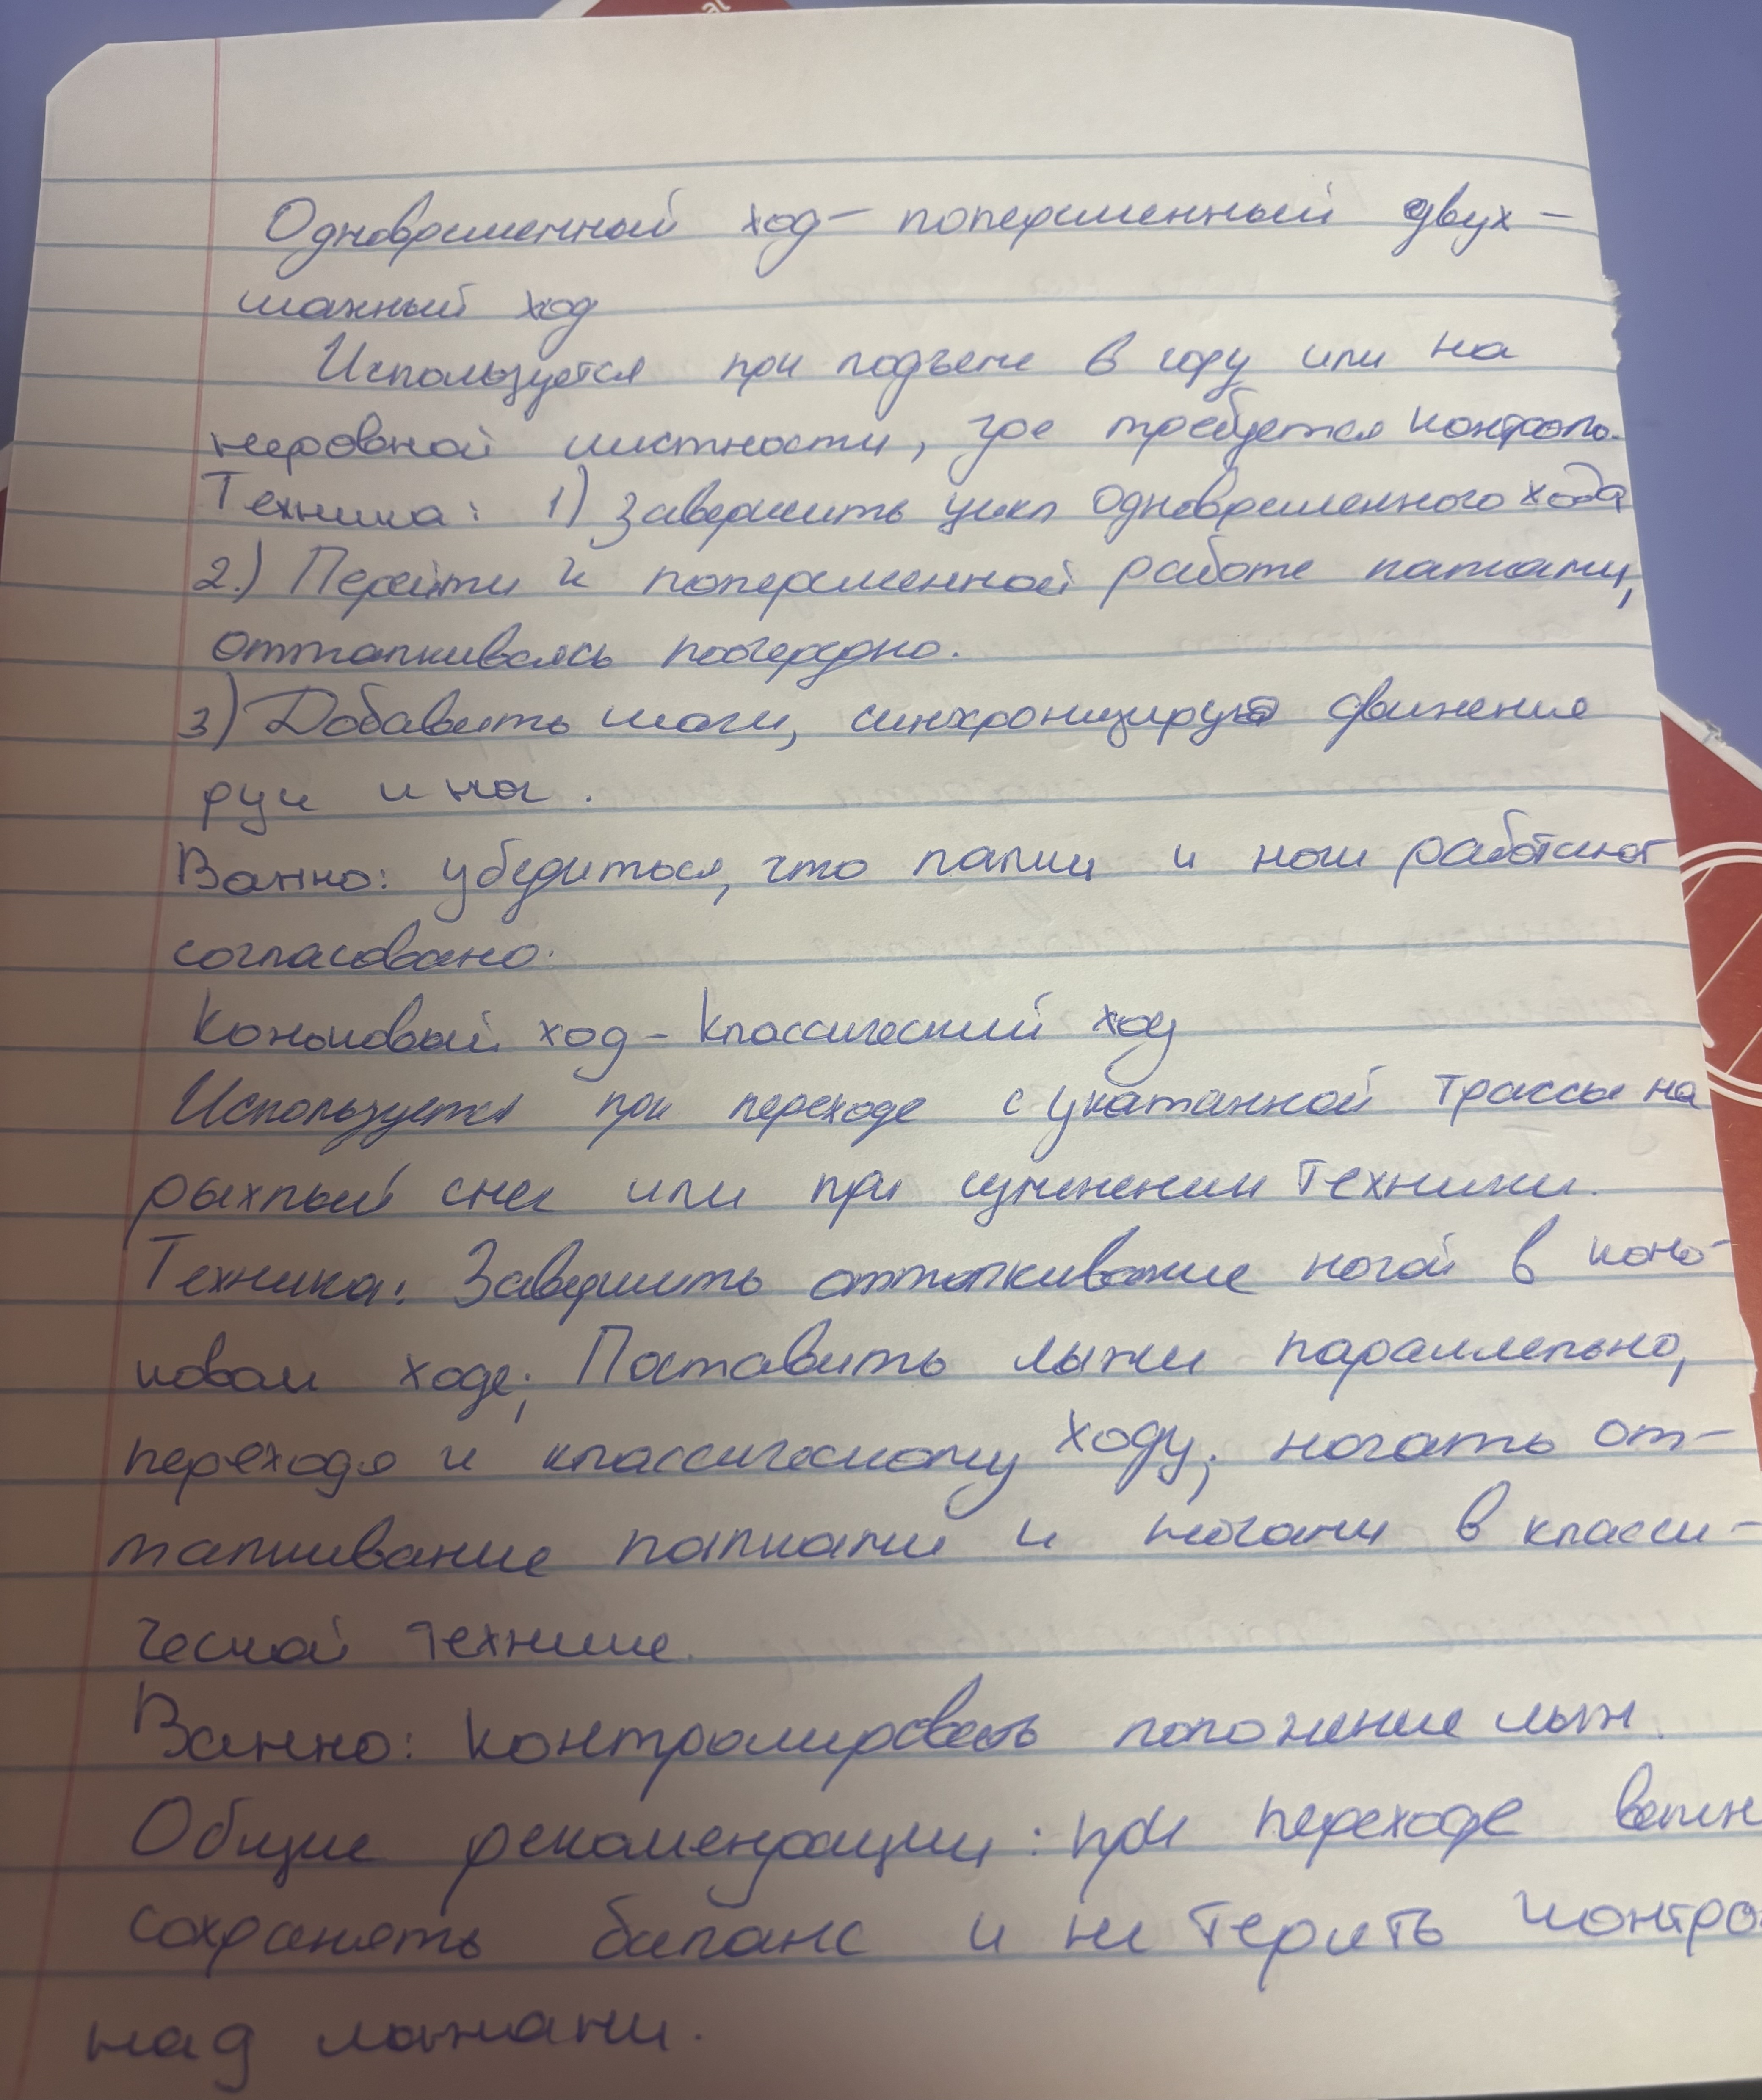 Одновременный ход – попеременный двух-
шажный ход
Используется при подъеме в гору или на
неровной местности, где требуется контроль.
Техника: 1) Завершить цикл одновременного хода
2.) Перейти к попеременной работе палками,
отталкиваясь поочередно.
3) Добавить шаги, синхронизируя движения
рук и ног.
Важно: убедиться, что палки и ноги работают
согласовано.
Коньковый ход – Классический ход
Используется при переходе с укатанной трассы на
рыхлый снег или при техники.
Техника: Завершить отталкивание ногой в конь-
ковом ходе; Поставить лыжи параллельно,
переходя к классическому ходу; начать от-
талкивание палками и ногами в класси-
ческой технике.
Важно: Контролировать положение лыж.
Общие рекомендации: при переходе важн
сохранять баланс и не терять контро
над лыжами.